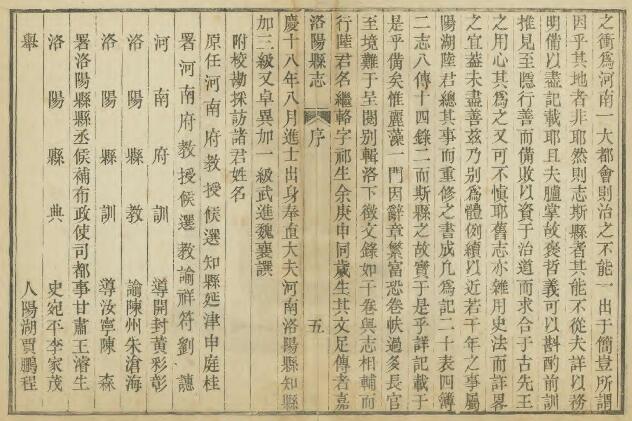 之衝為河南一大都會則治之不能一出于簡豈所謂
因乎其地者非耶然則志斯縣者其能不從夫詳以務
明備以盡記載耶且夫臚掌故褒哲義可以斟酌前訓
推見至隱行善而備敗以資于治道而求合于古先王
之用心其為之又可不慎耶舊志亦雜用史法而詳畧
之宜蓋未盡善茲乃別為體例續以近若干年之事屬
陽湖陸君總其事而重修之書成凡為記二十表四簿
二志八傳十四錄二而斯縣之故實于是乎詳記載于
是乎備矣惟麗藻一門因辭章繁富恐卷帙過多長官
至境難于呈閱別輯洛下徵文錄如干卷與志相輔而
行陸君名繼輅字祁生余庚申同歲生其文足傳者嘉
洛陽縣志 序 五
慶十八年八月進士出身奉直大夫河南洛陽縣知縣
加三級又卓異加一級武進魏襄譔
附校勘採訪諸君姓名
原任河南府教授候選知縣延津申庭桂
署河南府教授候選教諭祥符劉譓
河南府訓導開封黃彩彰
洛陽縣教諭陳州朱滄海
洛陽縣訓導汝寧陳森
署洛陽縣縣丞候補布政使司都事甘肅王濬生
洛陽縣典史宛平李家茂
舉人陽湖賈鵬程